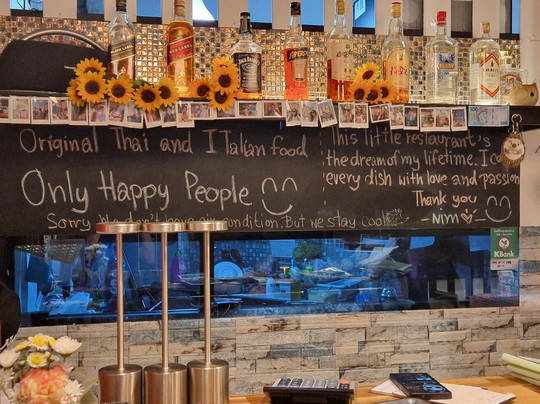 Original Thai and ITalian food
Only Happy People
Sorry We don't have air condition. But we stay cool
This little restaurant's
the dream of my lifetime. I
every dish with love and passion
Thank you
-Nim
KBank